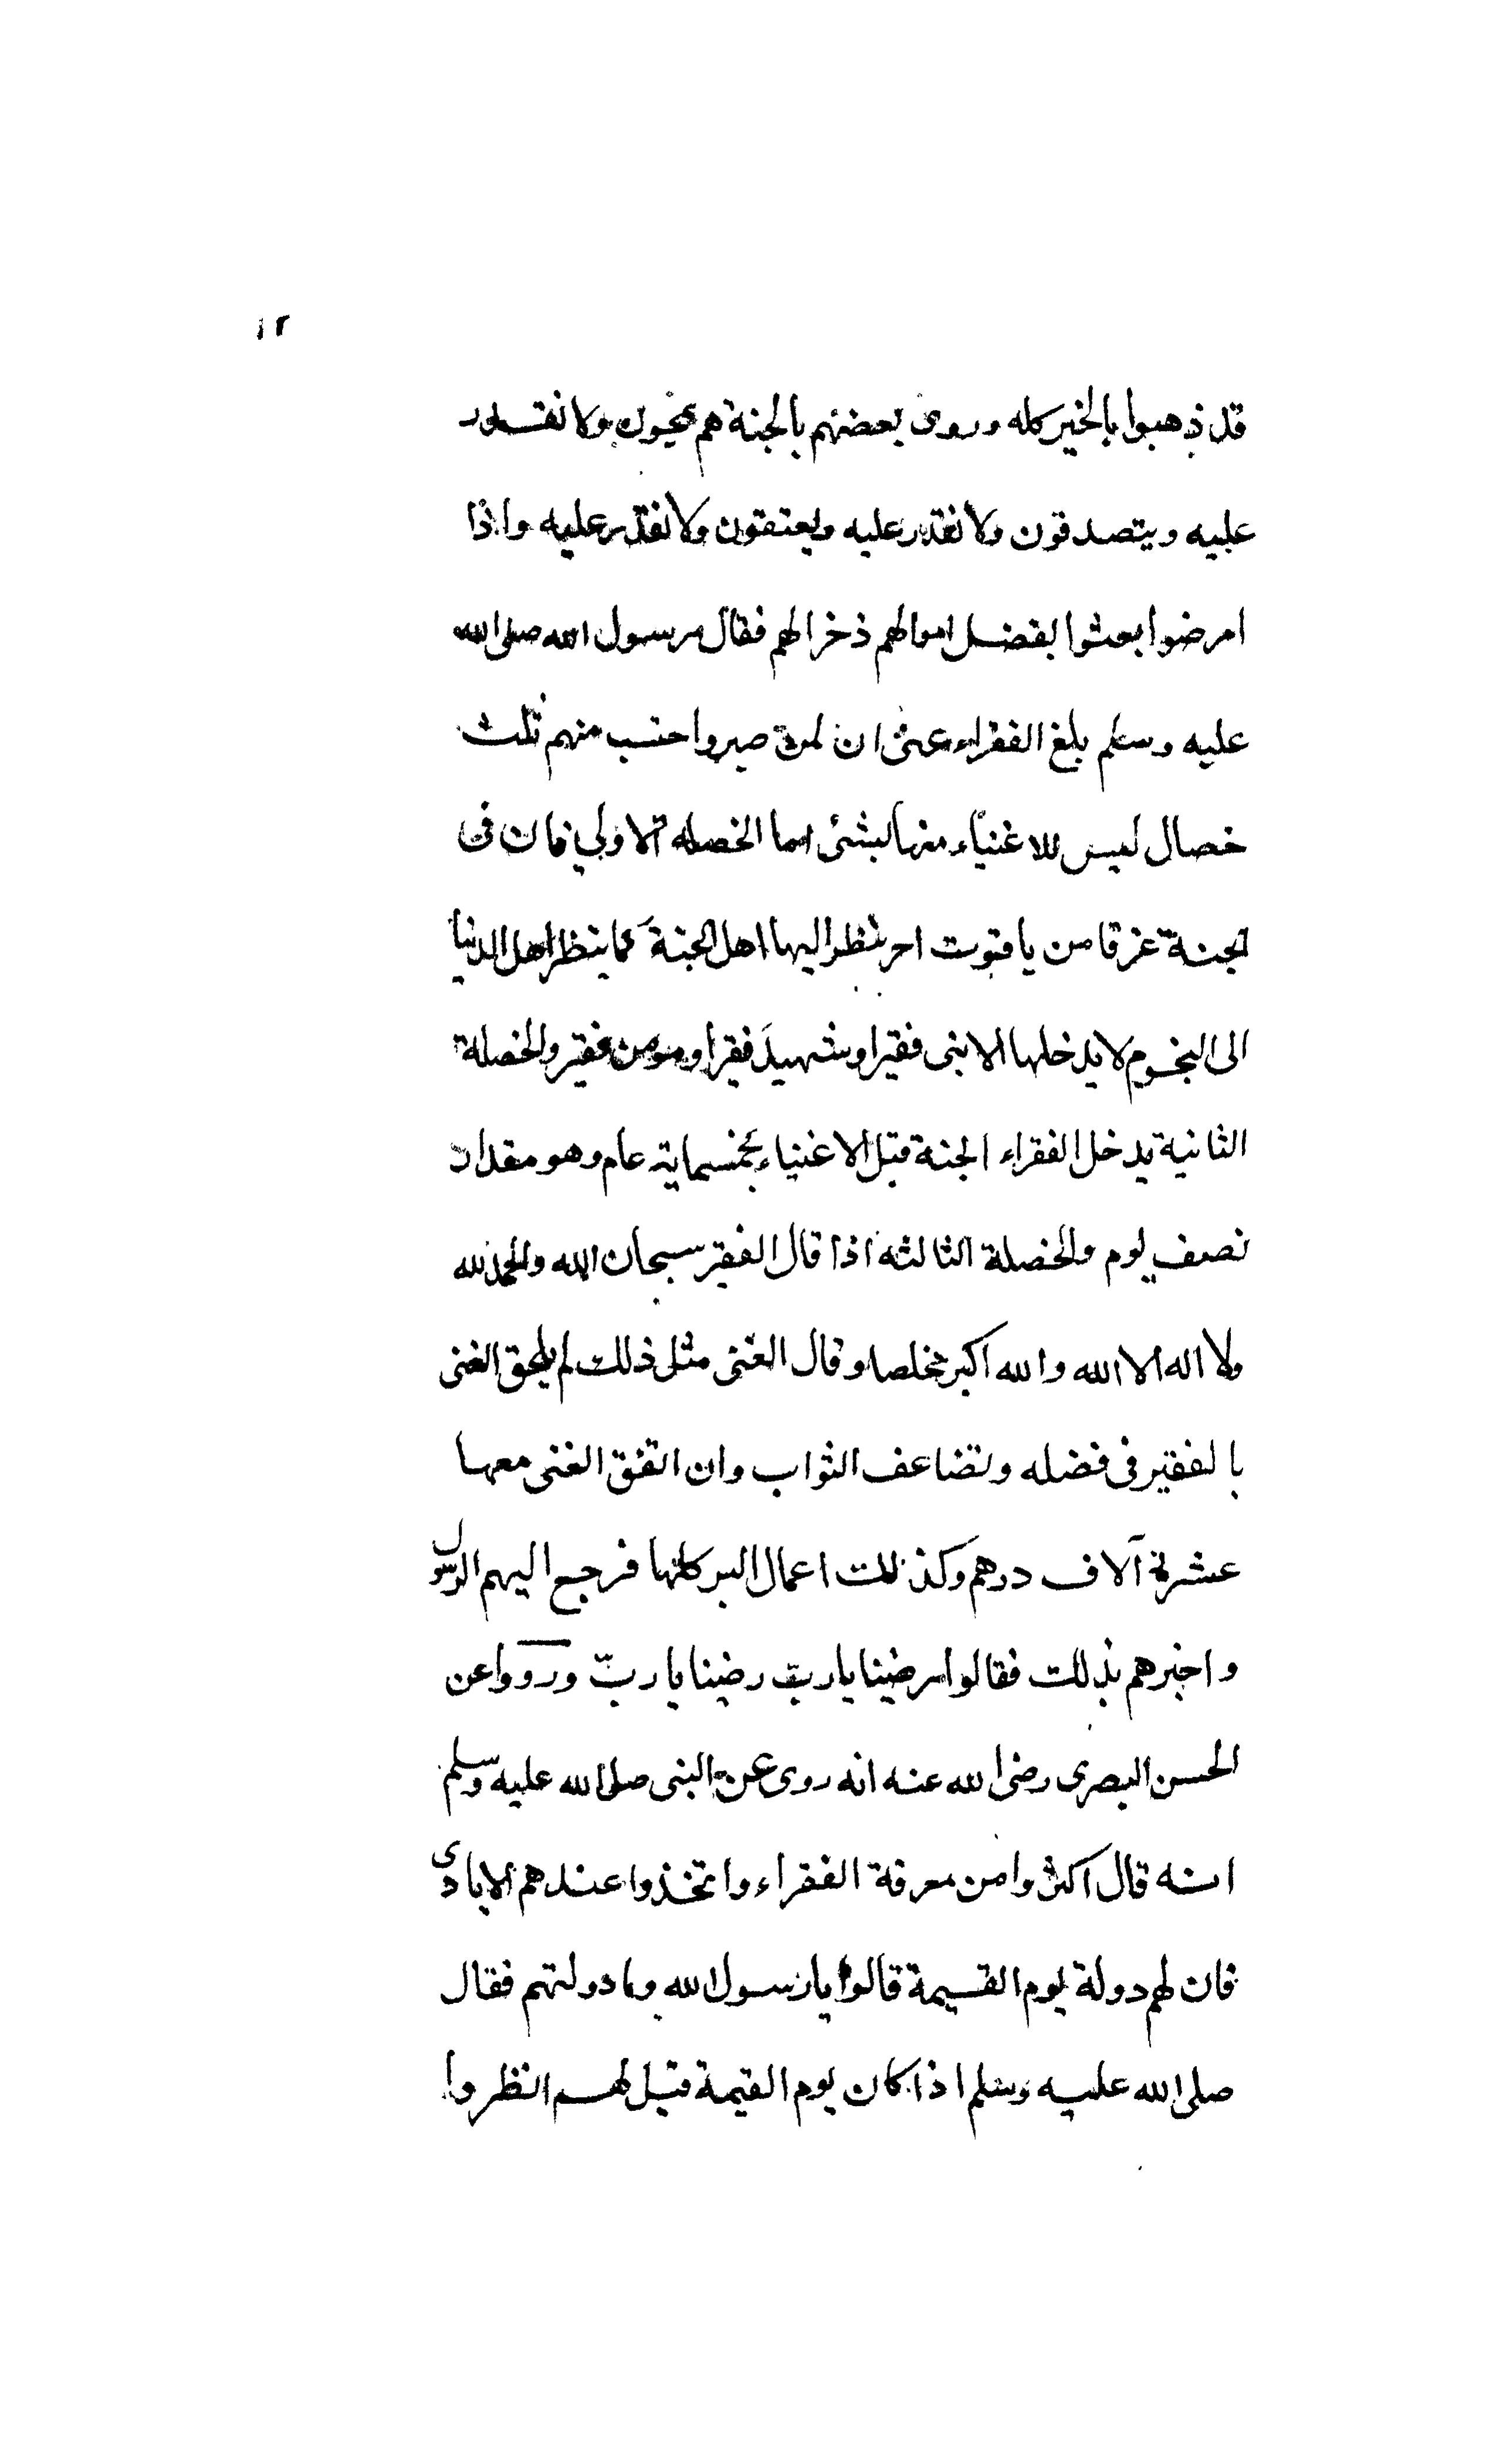 ١٢
قد ذهبوا بالخير كله وروى بعضهم بالجنة هم يحجون ولا نقدر
عليه ويتصدقون ولا نقدر عليه ويعتقون ولا نقدر عليه واذا
امرضوا بعثوا بفضل اموالهم ذخرا لهم فقال رسول الله صلى الله
عليه وسلم بلغ الفقراء عنى ان لمن صبر واحتسب منهم ثلث
خصال ليس للاغنياء منها بشئ اما الخصلة الاولى فان فى
الجنة غرفا من ياقوت احر ينظر اليها اهل الجنة كما ينظر اهل الدنيا
الى النجوم لا يدخلها الا نبى فقير او شهيد فقير او مومن فقير والخصلة
الثانية يدخل الفقراء الجنة قبل الاغنياء بخمسماية عام وهو مقدار
نصف يوم والخصلة الثالثة اذا قال الفقير سبحان الله والحمد لله
ولا اله الا الله والله اكبر مخلصا وقال الغنى مثل ذلك لم يلحق الغنى
بالفقير فى فضله وتضاعف الثواب وان انفق الغنى معها
عشرة آلاف درهم وكذلك اعمال البر كلها فرجع اليهم الرسول
واخبرهم بذلك فقالوا رضينا يا ربّ رضينا يا ربّ ورووا عن
الحسن البصرى رضى الله عنه انه روى عن النبى صلى الله عليه وسلم
انه قال اكثروا من معرفة الفقراء واتخذوا عندهم الايادى
فان لهم دولة يوم القيمة قالوا يا رسول الله وما دولتهم فقال
صلى الله عليه وسلم اذا كان يوم القيمة قيل لهم انظروا